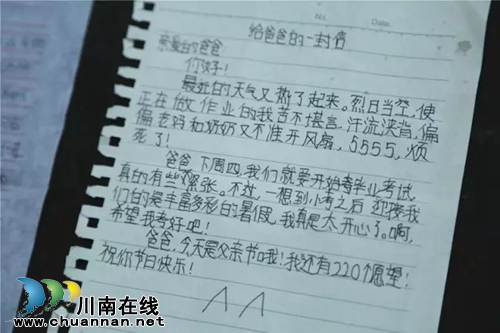 No.
Date.
给爸爸的一封信
亲爱的爸爸
你好!
最近的天气又热了起来。烈日当空,使
正在做作业的我苦不堪言。汗流浃背,偏
偏老妈和奶奶又不准开风扇,5555,烦
死了!
爸爸下周四,我们就要开始考毕业考试
真的有些紧张。不过,一想到小考之后迎接我
们的是丰富多彩的暑假,我真是太开心了。啊,
希望我考好吧!
爸爸,今天是父亲节哦!我还有220个愿望!
祝你节日快乐!
AA
川南在线
www.chuannan.net